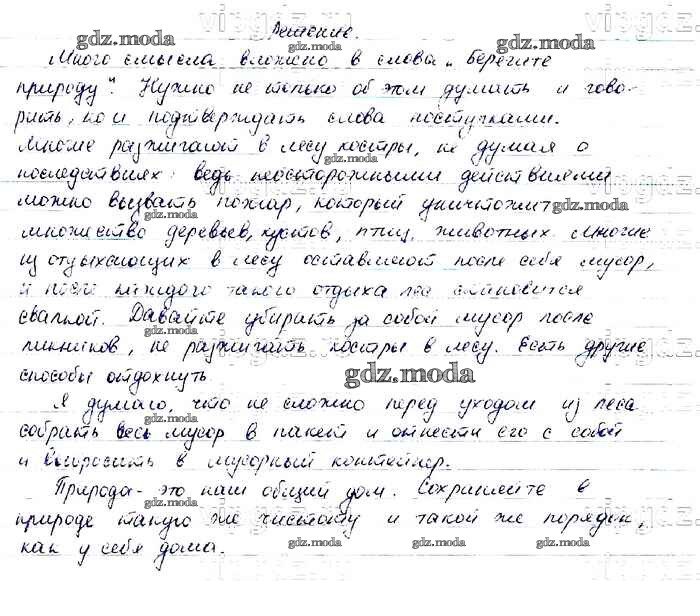 Решение.
Много смысла вложено в слова „Берегите
природу". Нужно не только об этом думать и гово-
рить, но и подтверждать слова поступками.
Многие разжигают в лесу костры, не думая о
последствиях: ведь неосторожными действиями
можно вызвать пожар, который уничтожит
множество деревьев, кустов, птиц, животных. Многие
из отдыхающих в лесу оставляют после себя мусор,
и после каждого такого отдыха лес становится
свалкой. Давайте убирать за собой мусор после
пикников, не разжигать костры в лесу. Есть другие
способы отдохнуть.
Я думаю, что не сложно перед уходом из леса
собрать весь мусор в пакет и отнести его с собой
и выбросить в мусорный контейнер.
Природа - это наш общий дом. Сохраняйте в
природе такую же чистоту и такой же порядок,
как у себя дома.
gdz.moda